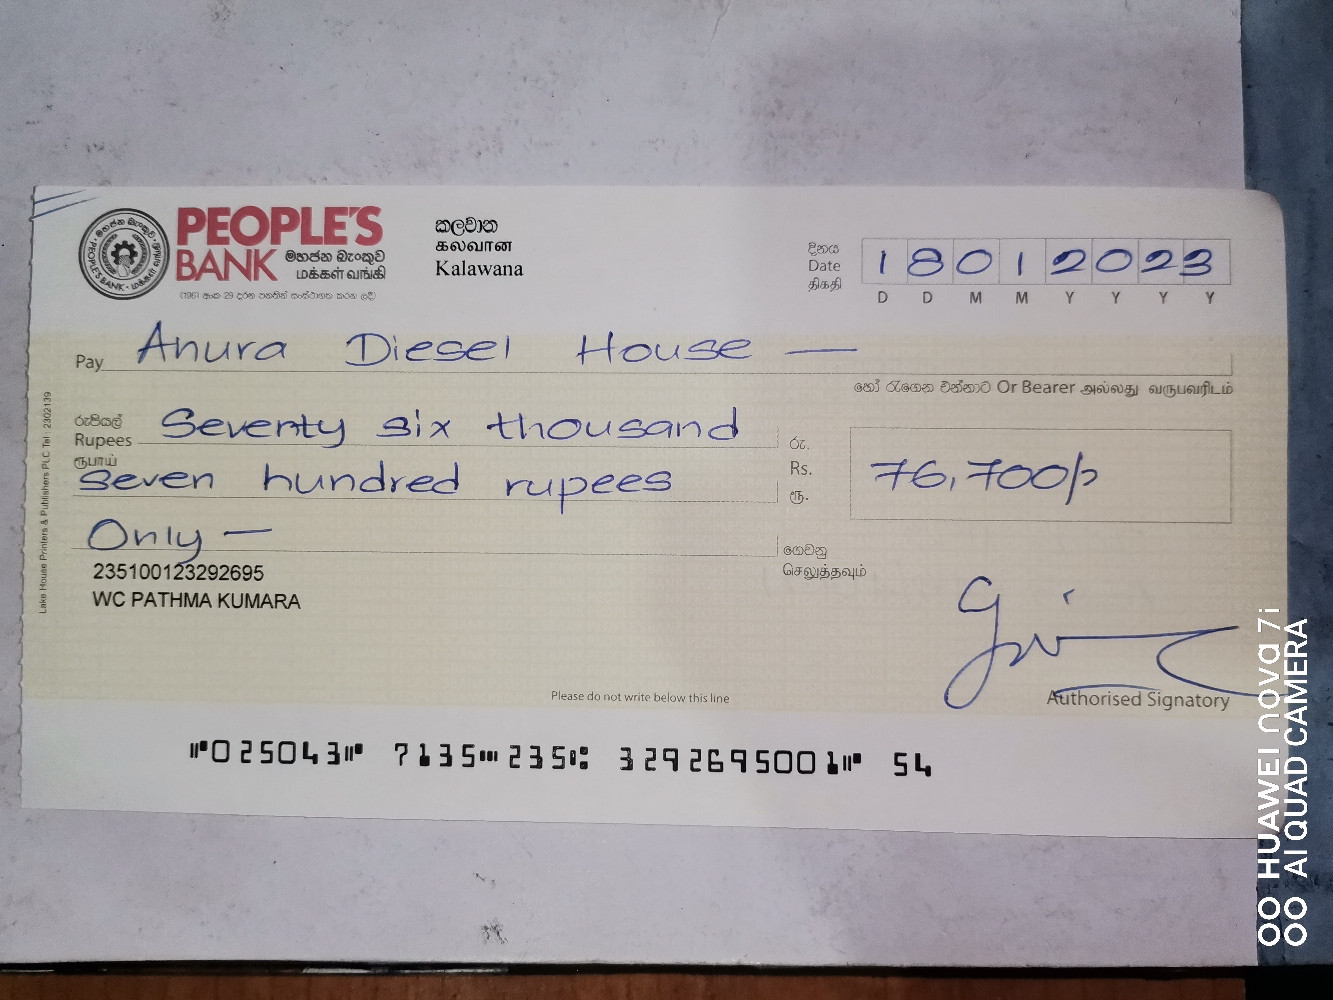 PEOPLE'S
BANK මහජන බැංකුව
மக்கள் வங்கி
(1961 අංක 29 දරන පනතින් සංස්ථාගත කරන ලදී)
කලවාන
கலவான
Kalawana
දිනය
Date
திகதி
18012023
D D M M Y Y Y Y
Pay Anura Diesel House —
හෝ රැගෙන එන්නාට Or Bearer அல்லது வருபவரிடம்
රුපියල්
Rupees Seventy six thousand
ரூபாய்
seven hundred rupees
Only —
රු.
Rs. 76,700/
ரூ.
ගෙවනු
செலுத்தவும்
235100123292695
WC PATHMA KUMARA
Authorised Signatory
Please do not write below this line
025043 7135 235 3292695001 54
Lake House Printers & Publishers PLC Tel : 2302139
HUAWEI nova 7i
AI QUAD CAMERA